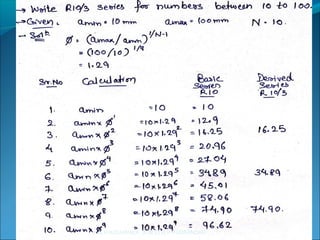 → Write R10/3 series for numbers between 10 to 100.
→ Given: amin = 10mm amax = 100mm N = 10.
→ Solⁿ: Ø = (amax/amin)^1/N-1
= (100/10)^1/9
= 1.29
Sr.No Calculation Basic Series R10 Derived Series R10/3
1. amin = 10 = 10
2. amin x Ø = 10 x 1.29 = 12.9
3. amin x Ø² = 10 x 1.29² = 16.25 16.25
4 amin x Ø³ = 10 x 1.29³ = 20.96
5. amin x Ø⁴ = 10 x 1.29⁴ = 27.04
6. amin x Ø⁵ = 10 x 1.29⁵ = 34.89 34.89
7. amin x Ø⁶ = 10 x 1.29⁶ = 45.01
8. amin x Ø⁷ = 10 x 1.29⁷ = 58.06
9. amin x Ø⁸ = 10 x 1.29⁸ = 74.90 74.90.
10. amin x Ø⁹ = 10 x 1.29⁹ = 96.62